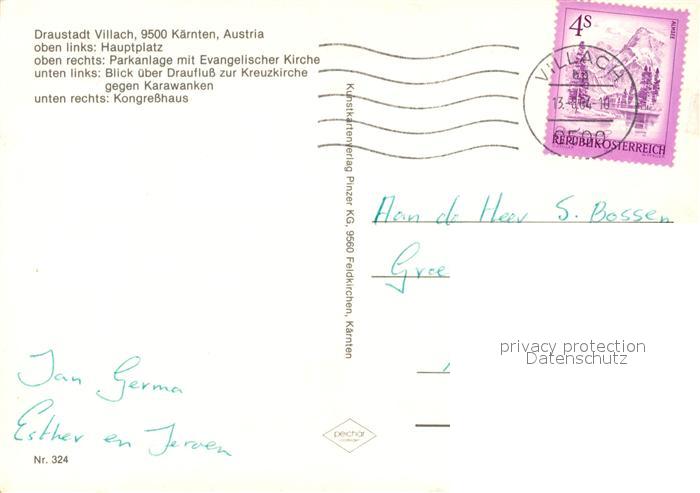 Draustadt Villach, 9500 Kärnten, Austria
oben links: Hauptplatz
oben rechts: Parkanlage mit Evangelischer Kirche
unten links: Blick über Draufluß zur Kreuzkirche
gegen Karawanken
unten rechts: Kongreßhaus
4S
ALMSEE
VILLACH
9500
REPUBLIK ÖSTERREICH
Kunstkartenverlag Pinzer KG, 9560 Feldkirchen, Kärnten
Aan de Heer S. Bossen
privacy protection
Datenschutz
Jan Germa
Esther en Jeroen
Nr. 324